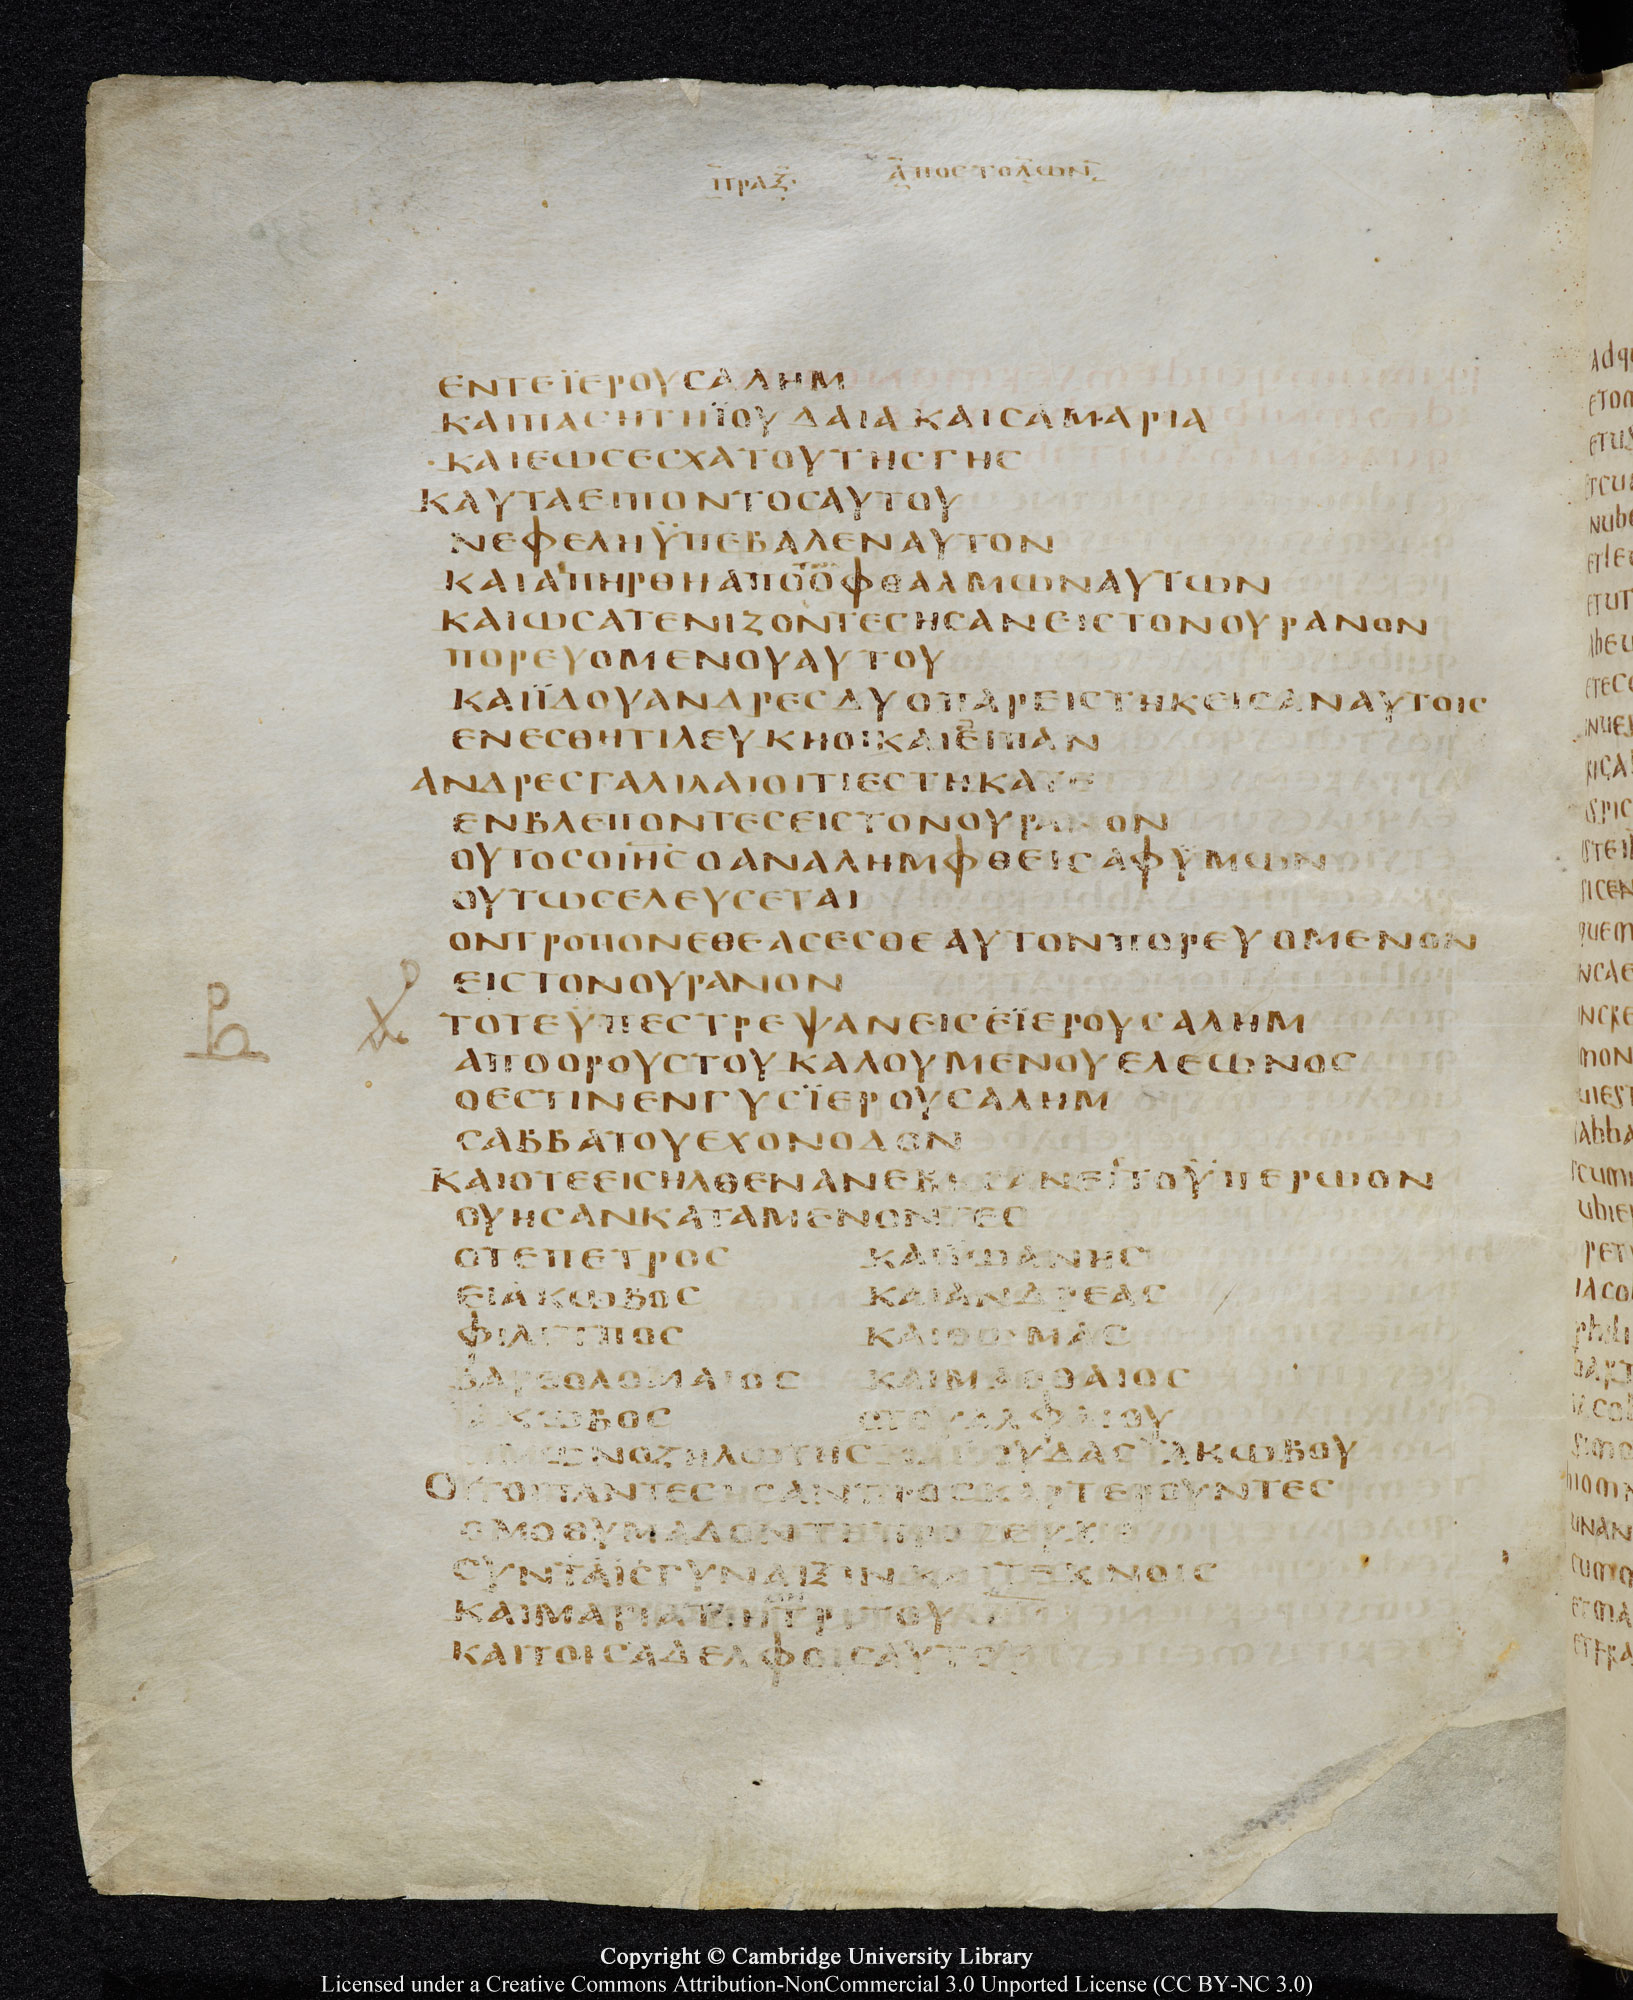 ΠΡΑΞ· ΑΠΟΣΤΟΛΩΝ
ΕΝΤΕΪΕΡΟΥΣΑΛΗΜ
ΚΑΙΠΑΣΗΤΗΪΟΥΔΑΙΑΚΑΙΣΑΜΑΡΙΑ
·ΚΑΙΕΩΣΕΣΧΑΤΟΥΤΗΣΓΗΣ
ΚΑΥΤΑΕΙΠΟΝΤΟΣΑΥΤΟΥ
ΝΕΦΕΛΗΫΠΕΒΑΛΕΝΑΥΤΟΝ
ΚΑΙΑΠΗΡΘΗΑΠΟΟΦΘΑΛΜΩΝΑΥΤΩΝ
ΚΑΙΩΣΑΤΕΝΙΖΟΝΤΕΣΗΣΑΝΕΙΣΤΟΝΟΥΡΑΝΟΝ
ΠΟΡΕΥΟΜΕΝΟΥΑΥΤΟΥ
ΚΑΙΪΔΟΥΑΝΔΡΕΣΔΥΟΠΑΡΕΙΣΤΗΚΕΙΣΑΝΑΥΤΟΙΣ
ΕΝΕΣΘΗΤΙΛΕΥΚΗΟΙΚΑΙΕΙΠΑΝ
ΑΝΔΡΕΣΓΑΛΙΛΑΙΟΙΤΙΕΣΤΗΚΑΤΕ
ΕΝΒΛΕΠΟΝΤΕΣΕΙΣΤΟΝΟΥΡΑΝΟΝ
ΟΥΤΟΣΟΙΗΣΟΑΝΑΛΗΜΦΘΕΙΣΑΦΫΜΩΝ
ΟΥΤΩΣΕΛΕΥΣΕΤΑΙ
ΟΝΤΡΟΠΟΝΕΘΕΑΣΕΣΘΕΑΥΤΟΝΠΟΡΕΥΟΜΕΝΟΝ
ΕΙΣΤΟΝΟΥΡΑΝΟΝ
ΤΟΤΕΫΠΕΣΤΡΕΨΑΝΕΙΣΕΪΕΡΟΥΣΑΛΗΜ
ΑΠΟΟΡΟΥΣΤΟΥΚΑΛΟΥΜΕΝΟΥΕΛΕΩΝΟΣ
ΟΕΣΤΙΝΕΝΓΥΣΪΕΡΟΥΣΑΛΗΜ
ΣΑΒΒΑΤΟΥΕΧΟΝΟΔΟΝ
ΚΑΙΟΤΕΕΙΣΗΛΘΕΝΑΝΕΒΗΣΑΝΕΙΤΟΫΠΕΡΩΟΝ
ΟΥΗΣΑΝΚΑΤΑΜΕΝΟΝΤΕΣ
ΟΤΕΠΕΤΡΟΣ ΚΑΙΪΩΑΝΗΣ
ΕΙΑΚΩΒΟΣ ΚΑΙΑΝΔΡΕΑΣ
ΦΙΛΙΠΠΟΣ ΚΑΙΘΩΜΑΣ
ΒΑΡΘΟΛΟΜΑΙΟΣ ΚΑΙΜΑΘΘΑΙΟΣ
ΪΑΚΩΒΟΣ ΟΤΟΥΑΛΦΑΙΟΥ
ΣΙΜΩΝΟΖΗΛΩΤΗΣΚΑΙΪΟΥΔΑΣΪΑΚΩΒΟΥ
ΟΥΤΟΙΠΑΝΤΕΣΗΣΑΝΠΡΟΣΚΑΡΤΕΡΟΥΝΤΕΣ
ΟΜΟΘΥΜΑΔΟΝΤΗΠΡΟΣΕΥΧΗ
ΣΥΝΤΑΙΣΓΥΝΑΙΞΙΝΚΑΙΤΕΚΝΟΙΣ
ΚΑΙΜΑΡΙΑΜΗΤΡΙΤΟΥ
ΚΑΙΤΟΙΣΑΔΕΛΦΟΙΣΑΥΤΟΥ
Copyright © Cambridge University Library
Licensed under a Creative Commons Attribution-NonCommercial 3.0 Unported License (CC BY-NC 3.0)